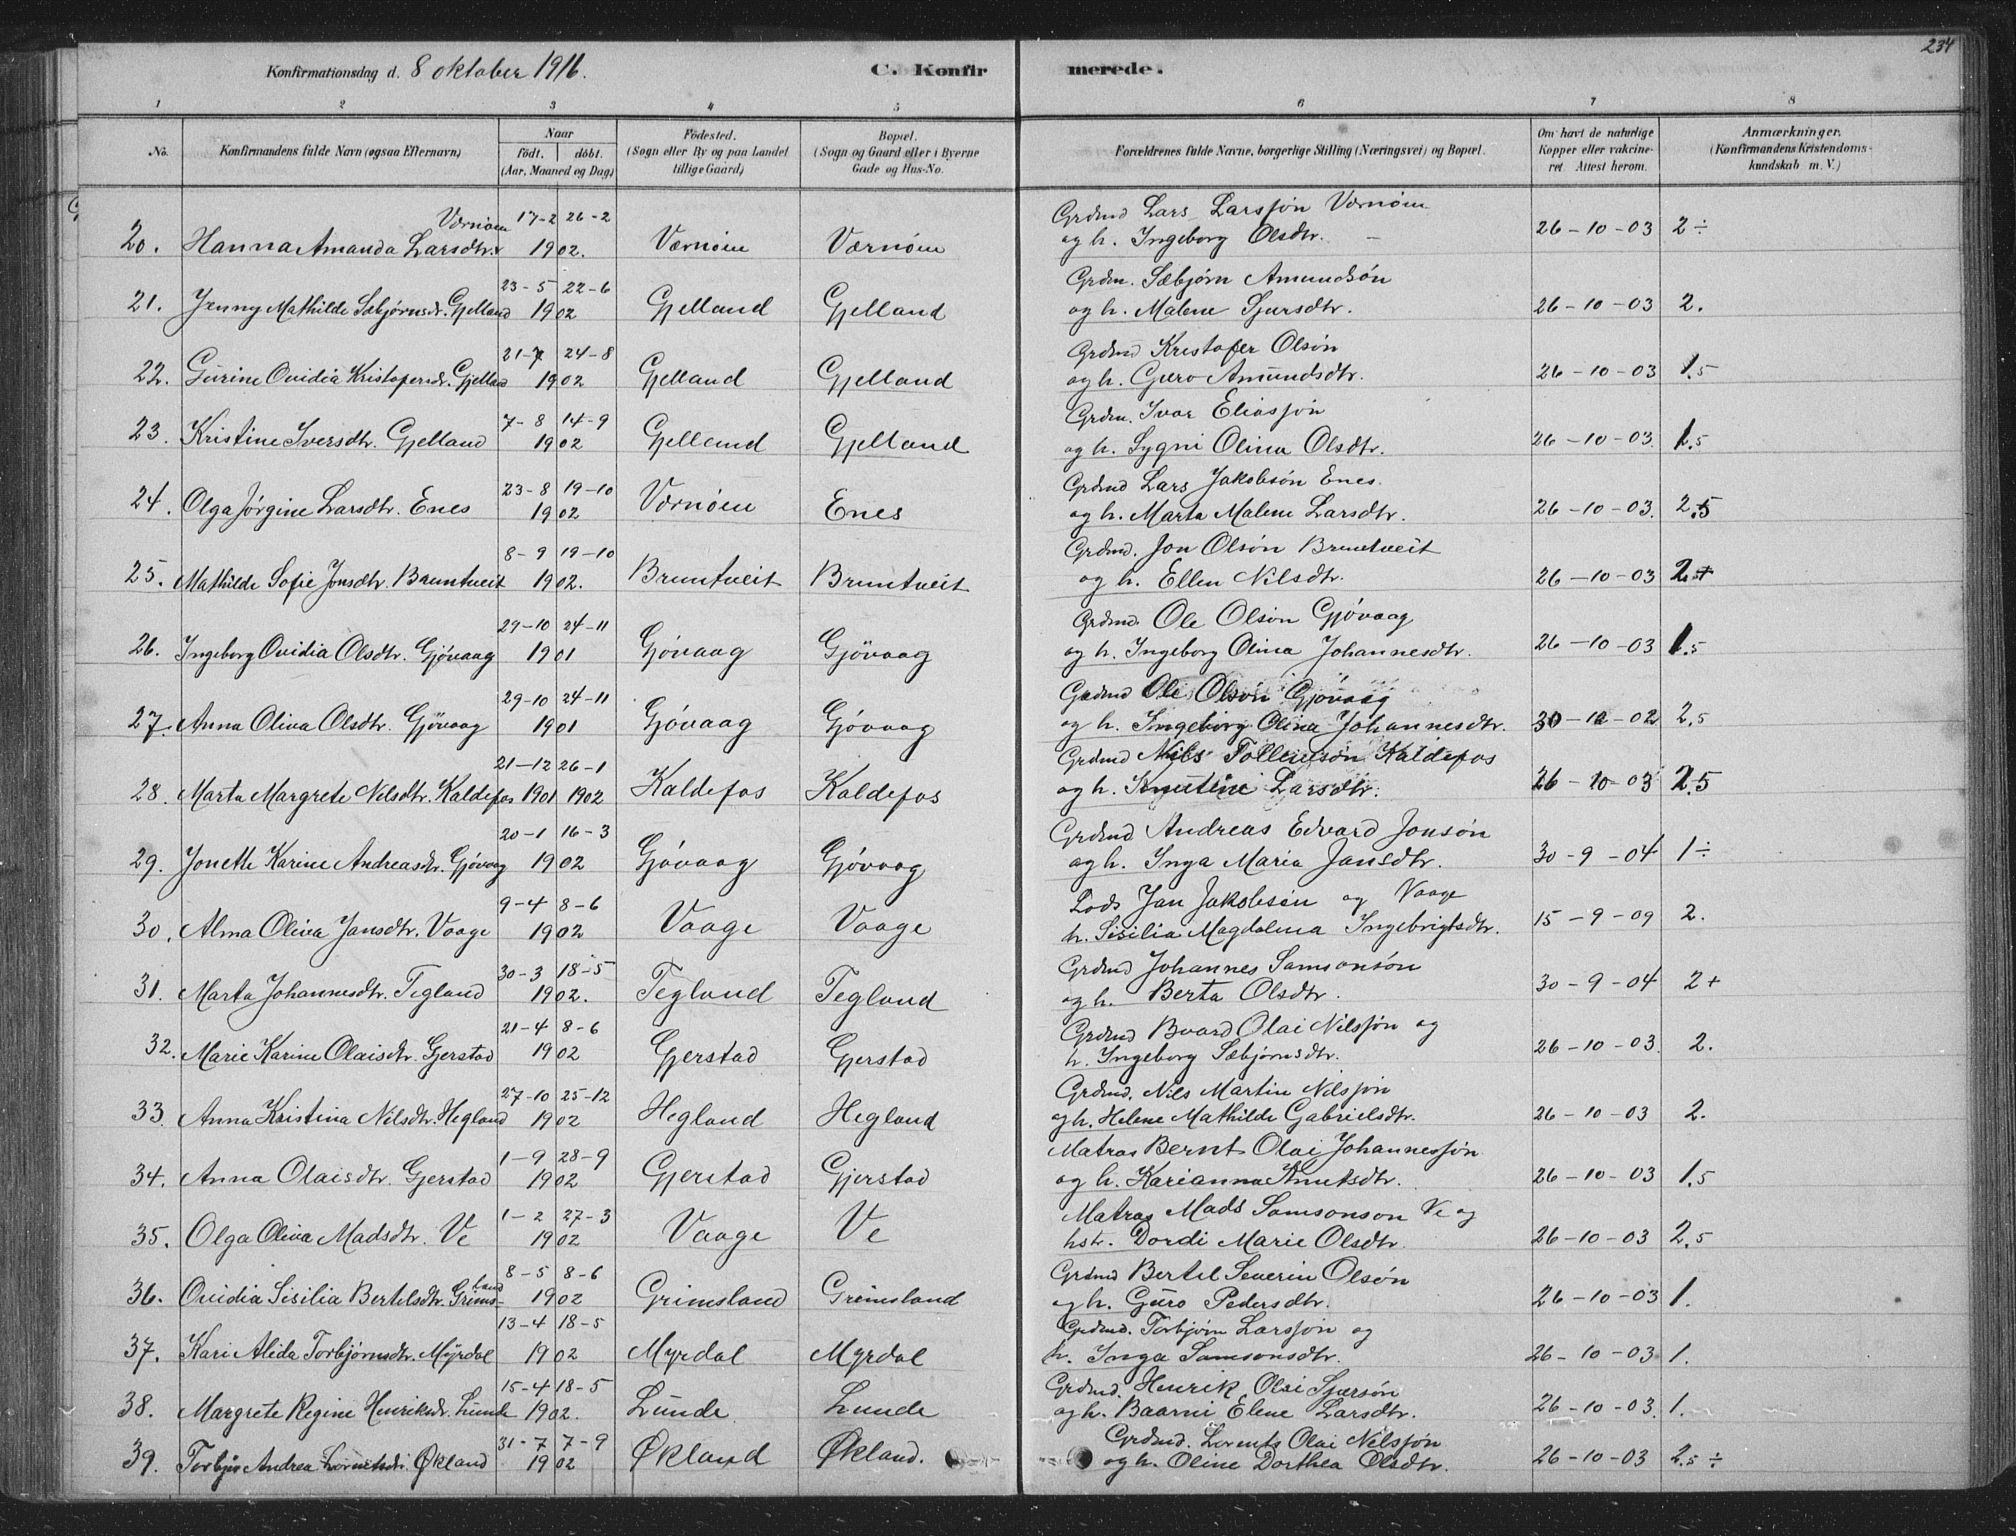 234
Konfirmationsdag d. 8 oktober 1916.
C. Konfir merede.
1 2 3 4 5 6 7 8
No. Konfirmandens fulde Navn (ogsaa Efternavn) Naar født. døbt. (Aar, Maaned og Dag) Fødested. (Sogn eller By og paa Landet tillige Gaard) Bopæl. (Sogn og Gaard eller i Byerne Gade og Hus-No. Forældrenes fulde Navne, borgerlige Stilling (Næringsvei) og Bopæl. Om havt de naturlige Kopper eller vakcineret. Attest herom. Anmærkninger. (Konfirmandens Kristendomskundskab m. V.)
Værnøen 17-2 26-2 Grdmd Lars Larssøn Værnøen
20. Hanna Amanda Larsdtr. 1902. Værnøen Værnøen og h. Ingeborg Olsdtr. 26-10-03 2÷
23-5 22-6 Grdm. Sæbjørn Amundsøn
21. Jenny Mathilde Sæbjørnsd. Gjelland 1902 Gjelland Gjelland og h. Malene Sjursdtr. 26-10-03 2.
21-7 24-8 Grdmd Kristofer Olsøn
22. Gurine Ovidia Kristofersd. Gjelland 1902 Gjelland Gjelland og h. Guro Amundsdtr. 26-10-03 1.5
7-8 14-9 Grdm. Ivar Eliassøn
23. Kristine Iversdtr. Gjelland 1902 Gjelland Gjelland og h. Sygni Olina Olsdtr. 26-10-03. 1.5
23-8 19-10 Grdmd Lars Jakobsøn Enes.
24. Olga Jørgine Larsdtr. Enes 1902 Værnøen Enes og h. Marta Malene Larsdtr. 26-10-03. 2.5
8-9 19-10 Grdmd. Jon Olsøn Bruntveit
25. Mathilde Sofie Jonsdtr. Bruntveit 1902. Bruntveit Bruntveit og h. Ellen Nilsdtr. 26-10-03 2
29-10 24-11 Grdmd. Ole Olsøn Gjøvaag
26. Ingeborg Ovidia Olsdtr. Gjøvaag 1901 Gjøvaag Gjøvaag og h. Ingeborg Olina Johannesdtr. 26-10-03 1.5
29-10 24-11 Grdmd Ole Olsøn Gjøvaag
27. Anna Oliva Olsdtr. Gjøvaag 1901 Gjøvaag Gjøvaag og h. Ingeborg Olina Johannesdtr. 30-10-02 2.5
21-12 26-1 Grdmd Nils Tollevsøn Kaldefos
28. Marta Margrete Nilsdtr. Kaldefos 1901 1902 Kaldefos Kaldefos og h. Knutine Larsdtr. 26-10-03 2.5
20-1 16-3 Grdmd Andreas Edvard Jonsøn
29. Jonette Karine Andreasdtr. Gjøvaag 1902 Gjøvaag Gjøvaag og h. Inga Maria Jansdtr. 30-9-04 1÷
9-4 8-6 Lods Jan Jakobsøn og Vaage
30. Alma Oliva Jansdtr. Vaage 1902 Vaage Vaage h. Sisilia Magdalena Ingebrigtsdtr. 15-9-09 2.
30-3 18-5 Grdmd Johannes Samsonsøn
31. Marta Johannesdtr. Tegland 1902. Tegland Tegland og h. Berta Olsdtr. 30-9-04 2+
21-4 8-6 Grdmd Baard Olai Nilssøn og
32. Marie Karine Olaisdtr. Gjerstad 1902 Gjerstad Gjerstad h. Ingeborg Sæbjørnsdtr. 26-10-03. 2.
27-10 25-12 Grdmd. Nils Martin Nilssøn
33. Anna Kristina Nilsdtr. Hegland 1902 Hegland Hegland og h. Helene Mathilde Gabrielsdtr. 26-10-03 2.
1-9 28-9 Matros Bernt Olai Johannessøn
34. Anna Olaisdtr. Gjerstad 1902 Gjerstad Gjerstad og h. Karianna Knutsdtr. 26-10-03 1.5
1-2 27-3 Matros Mads Samsonson Ve og
35. Olga Oliva Madsdtr. Ve 1902 Vaage Ve hstr. Dordi Marie Olsdtr. 26-10-03 2.5
land 8-5 8-6 Grdmd Bertel Severin Olsøn
36. Ovidia Sisilia Bertelsdtr. Grims- 1902 Grimsland Grimsland og h. Guro Pedersdtr. 26-10-03 1.
13-4 18-5 Grdmd. Torbjørn Larssøn og
37. Kari Alida Torbjørnsdtr. Myrdal 1902 Myrdal Myrdal h. Inga Samsonsdtr. 26-10-03 1.
15-4 18-5 Grdmd. Henrik Olai Sjursøn
38. Margrete Regine Henriksdr. Lunde 1902. Lunde Lunde og h. Baarni Elene Larsdtr. 26-10-03. 1.
31-7 7-9 Grdmd. Lorents Olai Nilssøn
39. Torbjør Andrea Lorentsd. Økland 1902 Økland Økland. og h. Oline Dorthea Olsdtr. 26-10-03 2.5÷